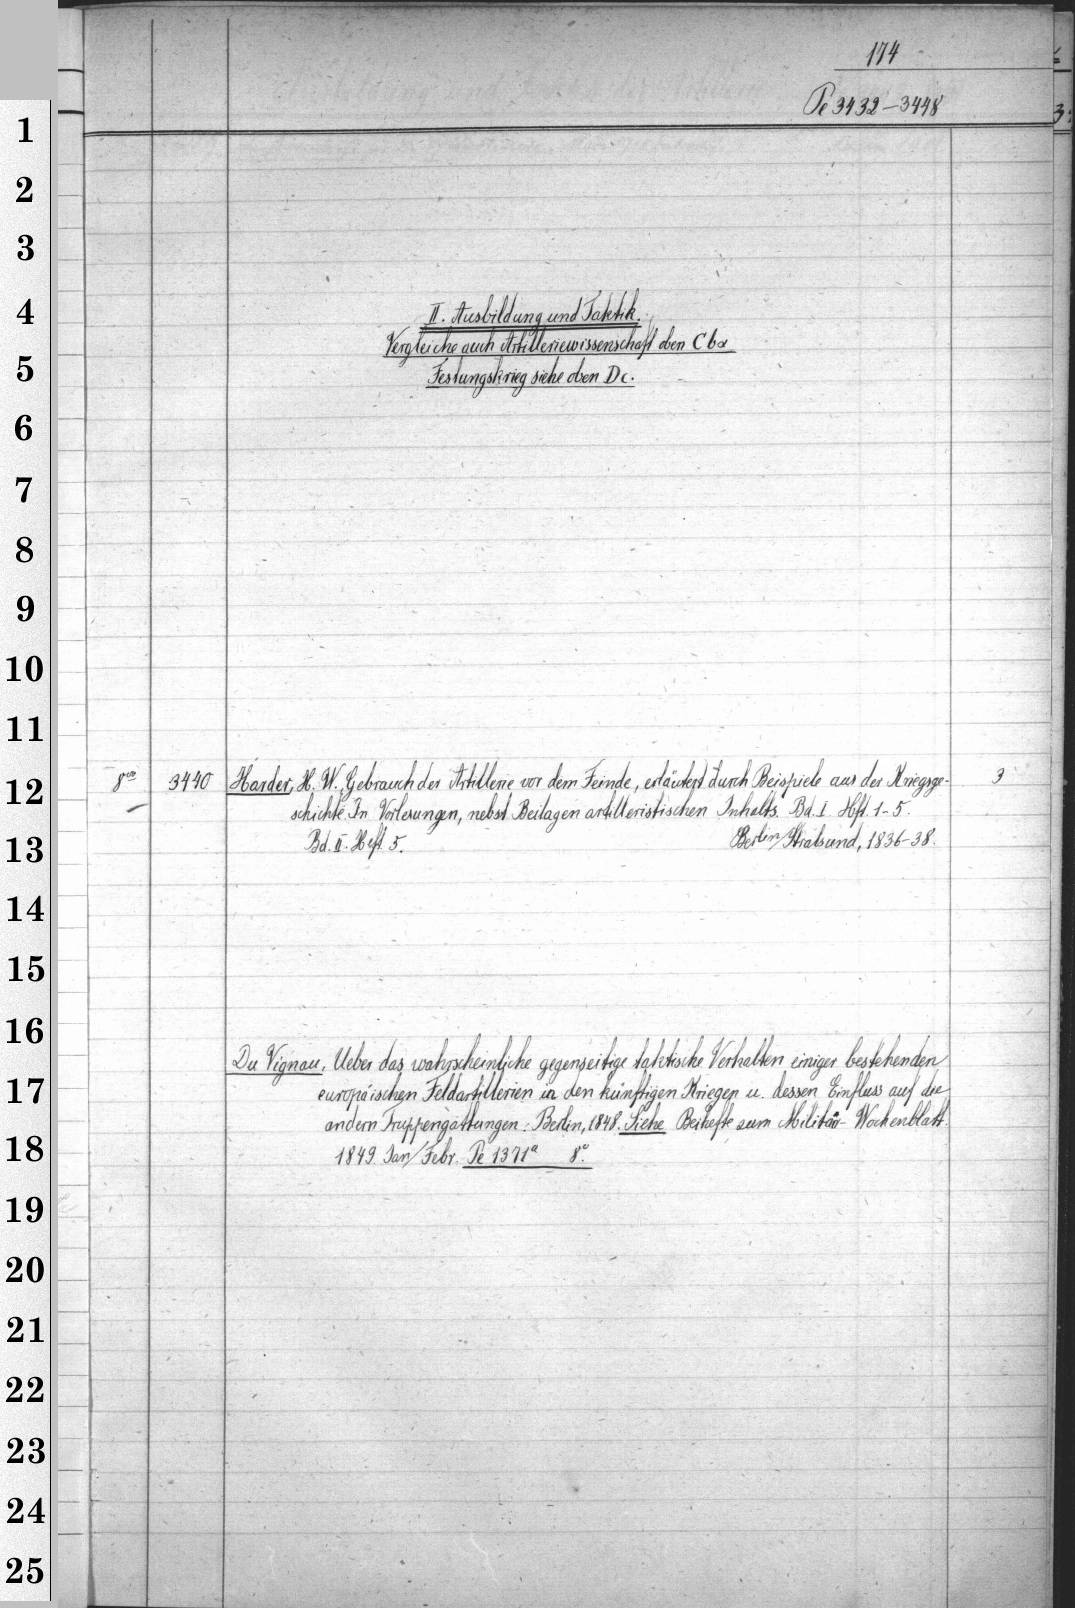 174
Pe 3432-3448
II. Ausbildung und Taktik.
Vergleiche auch Artilleriewissenschaft oben Cbα
Festungskrieg siehe oben Dc.
8vo 3440 Harder, H. W. Gebrauch der Artillerie vor dem Feinde, erläutert durch Beispiele aus der Kriegsge- 3
schichte. In Vorlesungen, nebst Beilagen artilleristischen Inhalts. Bd. I Hft. 1-5.
Bd. II. Heft 5. Berlin/Stralsund, 1836-38.
Du Vignau, Ueber das wahrscheinliche gegenseitige taktische Verhalten einiger bestehenden
europäischen Feldartillerien in den künftigen Kriegen u. dessen Einfluss auf die
andern Truppengattungen. Berlin, 1848. Siehe Beihefte zum Militär-Wochenblatt.
1849 Jan/Febr. Pe 1371a 8°.
1
2
3
4
5
6
7
8
9
10
11
12
13
14
15
16
17
18
19
20
21
22
23
24
25